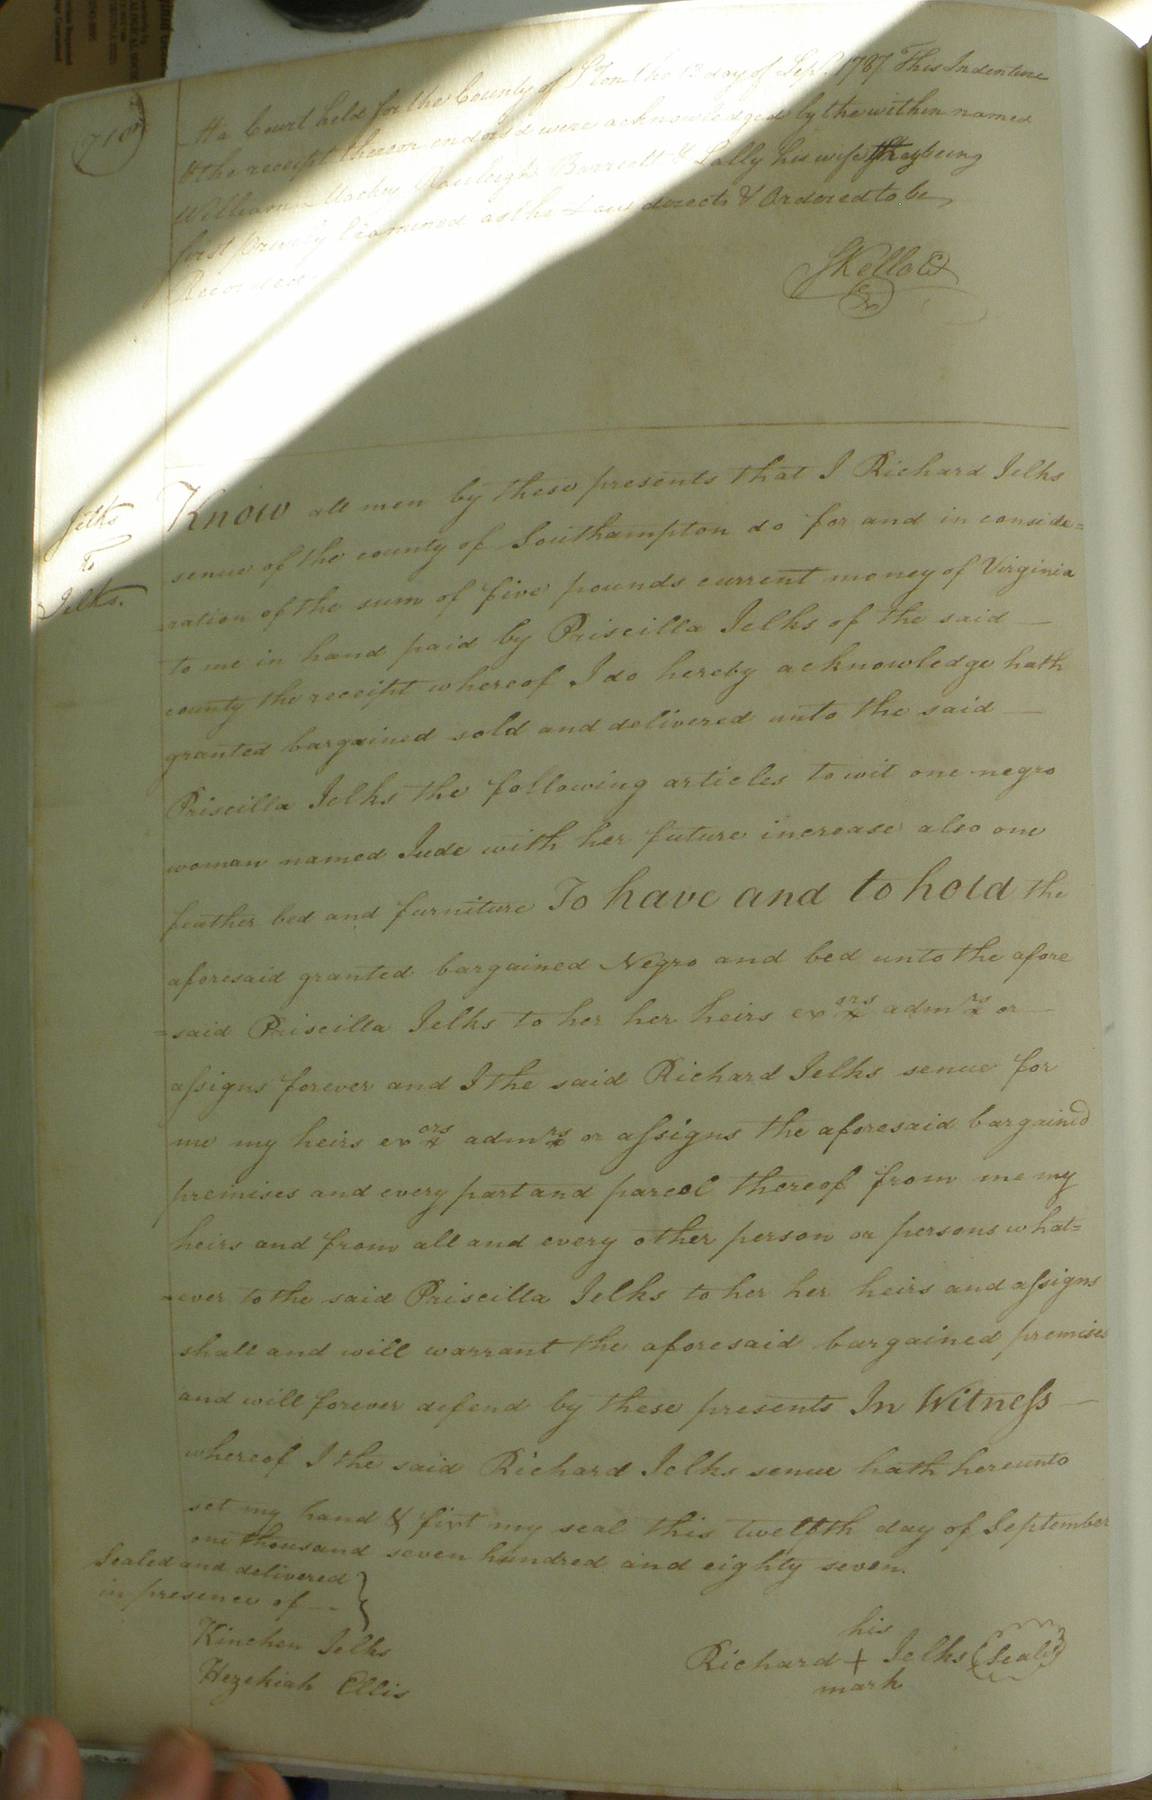 710
At a Court held for the County of S'ton the 13 day of Sept. 1787 This Indenture
& the receipt thereon endorsed were acknowledged by the within named
William Mackey Rawleigh Barrett & Sally his wife they being
first privily Examined as the Law directs & Ordered to be
Recorded
SKello Ct
Jelks
To
Jelks.
Know all men by these presents that I Richard Jelks
senue of the county of Southampton do for and in conside=
ration of the sum of five pounds current money of Virginia
to me in hand paid by Priscilla Jelks of the said —
county the receipt whereof I do hereby acknowledge hath
granted bargained sold and delivered unto the said —
Priscilla Jelks the following articles towit one negro
woman named Jude with her future increase also one
feather bed and furniture To have and to hold the
aforesaid granted bargained Negro and bed unto the afore
=said Priscilla Jelks to her her heirs exors admrs or —
assigns forever and I the said Richard Jelks senue for
me my heirs exors admrs or assigns the aforesaid bargained
premises and every part and parcel thereof from me my
heirs and from all and every other person or persons what=
=ever to the said Priscilla Jelks to her her heirs and assigns
shall and will warrant the aforesaid bargained premises
and will forever defend by these presents In Witness —
whereof I the said Richard Jelks senue hath hereunto
set my hand & fixt my seal this twelfth day of September
one thousand seven hundred and eighty seven.
Sealed and delivered
in presence of —
Kinchen Jelks
Hezekiah Ellis
his
Richard + Jelks (Seal)
mark